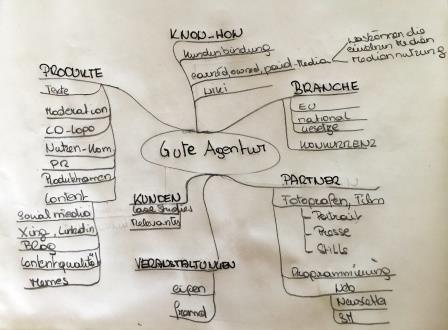 KNOW-HOW
Kundenbindung
earned, owned, paid-Media
was können die
einzelnen Medien
Mediennutzung
WIKI
PRODUKTE
Texte
Moderation
CO-Logo
Nutzen-Kom
PR
Produktnamen
Content
Social media
Xing, Linkedin
Blog
Contentqualität
Memes
BRANCHE
EU
national
Gesetze
KONKURRENZ
Gute Agentur
KUNDEN
Case Studies
Relevants
PARTNER
Fotografen, Film
- Portrait
- Presse
- Stills
Programmierung
Web
Newsletter
SM
VERANSTALTUNGEN
eigen
fremd